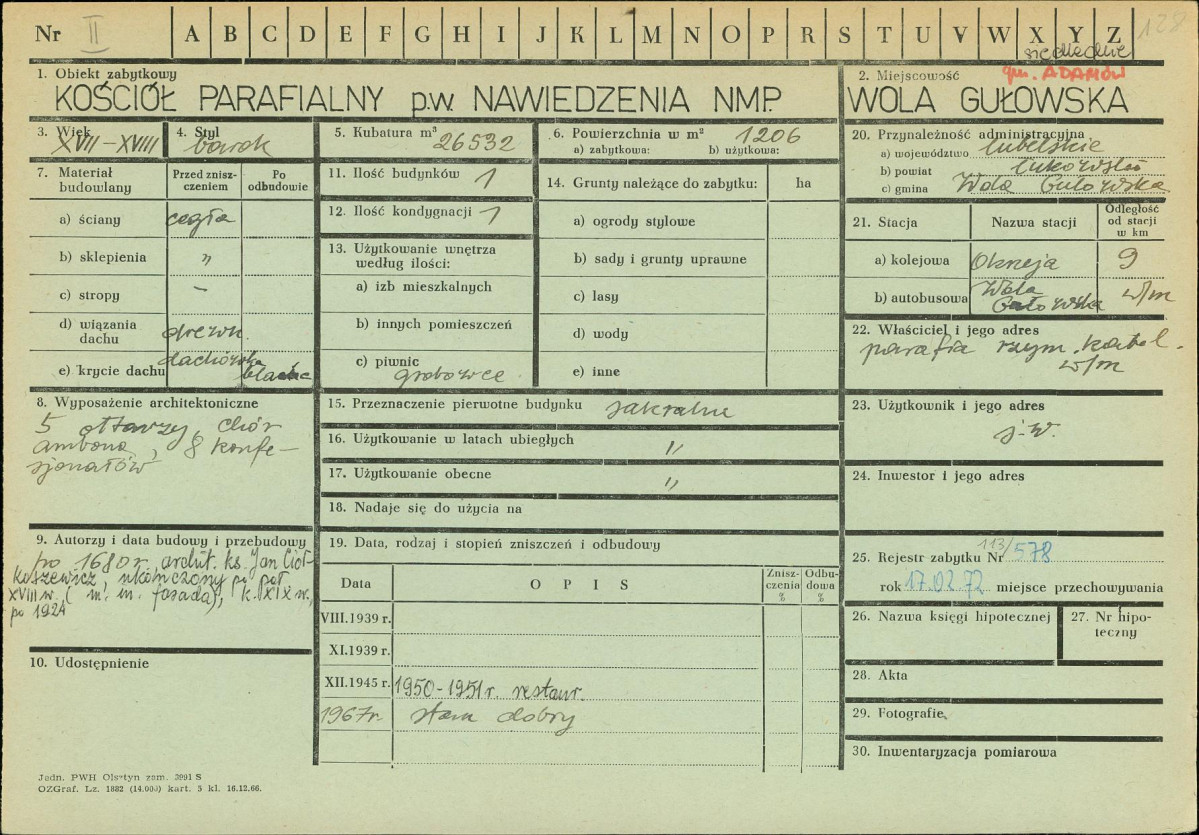 Nr II A B C D E F G H I J K L M N O P R S T U V W X Y Z 128
siedleckie
gm. ADAMÓW
1. Obiekt zabytkowy
KOŚCIÓŁ PARAFIALNY p.w. NAWIEDZENIA NMP.
2. Miejscowość
WOLA GUŁOWSKA
3. Wiek
XVII-XVIII
4. Styl
barok
5. Kubatura m³
26532
6. Powierzchnia w m² 1206
a) zabytkowa: b) użytkowa:
7. Materiał budowlany
Przed zniszczeniem
Po odbudowie
a) ściany cegła
b) sklepienia "
c) stropy –
d) wiązania dachu drewn.
e) krycie dachu dachówka blacha
8. Wyposażenie architektoniczne
5 ołtarzy, chór
ambona, 8 konfe-
sjonałów
9. Autorzy i data budowy i przebudowy
po 1680 r., archit. ks. Jan Cioł-
koszewicz, ukończony p. poł.
XVIII w. (m. in. fasada), k. XIX w.,
po 1924
10. Udostępnienie
11. Ilość budynków 1
12. Ilość kondygnacji 1
13. Użytkowanie wnętrza
według ilości:
a) izb mieszkalnych
b) innych pomieszczeń
c) piwnic
grobowce
14. Grunty należące do zabytku: ha
a) ogrody stylowe
b) sady i grunty uprawne
c) lasy
d) wody
e) inne
15. Przeznaczenie pierwotne budynku sakralne
16. Użytkowanie w latach ubiegłych "
17. Użytkowanie obecne "
18. Nadaje się do użycia na
19. Data, rodzaj i stopień zniszczeń i odbudowy
Data OPIS Zniszczenia % Odbudowa %
VIII.1939 r.
XI.1939 r.
XII.1945 r. 1950-1951 r. restaur.
1967 r. stan dobry
20. Przynależność administracyjna
a) województwo lubelskie
b) powiat łukowski
c) gmina Wola Gułowska
21. Stacja Nazwa stacji Odległość od stacji w km
a) kolejowa Okrzeja 9
b) autobusowa Wola Gułowska w/m
22. Właściciel i jego adres
parafia rzym. katol.
w/m
23. Użytkownik i jego adres
j.w.
24. Inwestor i jego adres
25. Rejestr zabytku Nr 113/578
rok 17.02.72 miejsce przechowywania
26. Nazwa księgi hipotecznej
27. Nr hipo-
teczny
28. Akta
29. Fotografie
30. Inwentaryzacja pomiarowa
Jedn. PWH Olsztyn zam. 3991 S
OZGraf. Lz. 1882 (14.000) kart. 5 kl. 16.12.66.